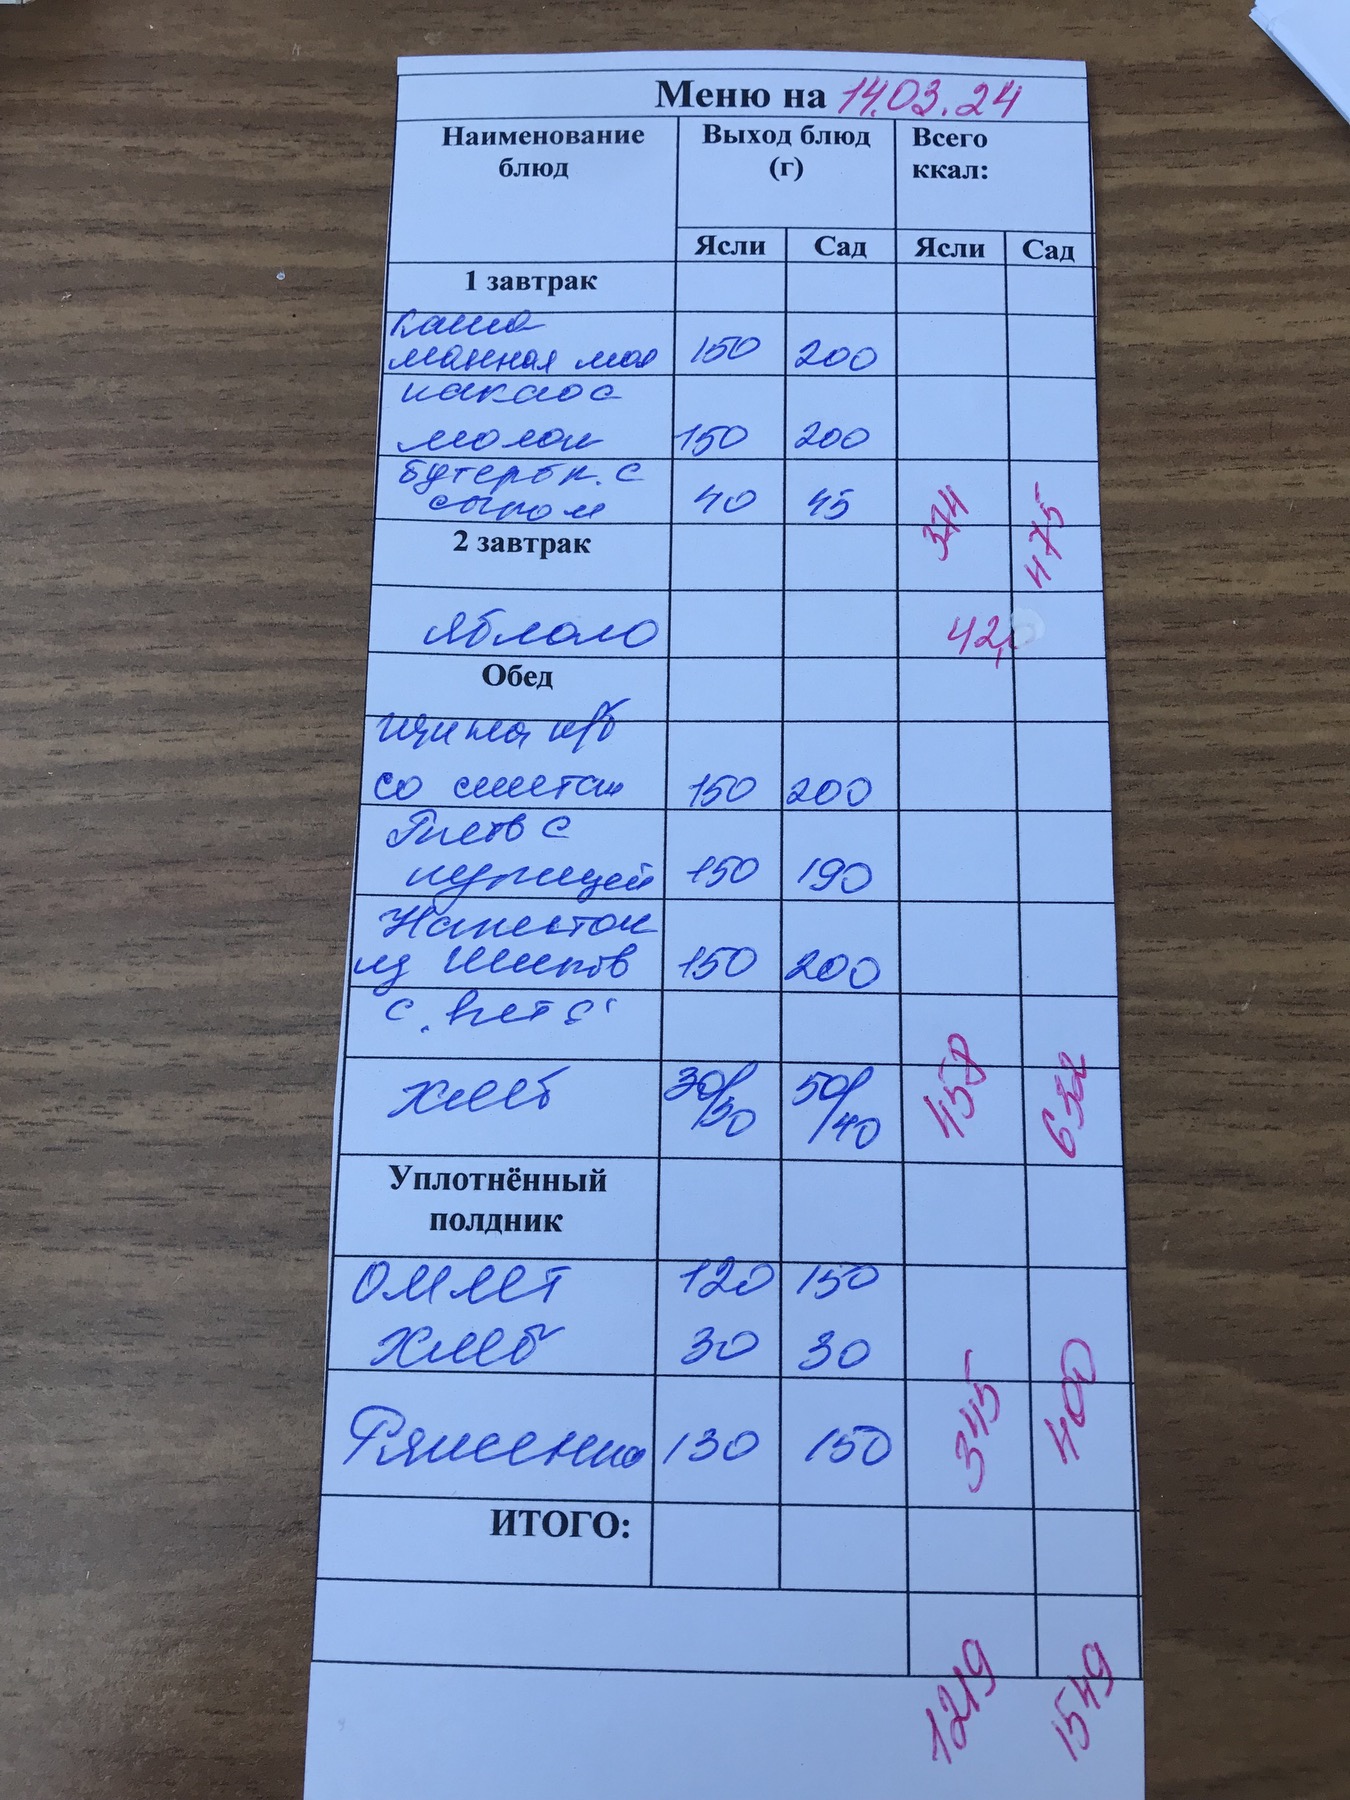 Меню на 14.03.24
Наименование блюд Выход блюд (г) Всего ккал:
Ясли Сад Ясли Сад
1 завтрак
Каша
манная мол 150 200
какао с
молок 150 200
бутерб к. с
сыром 40 45 374 475
2 завтрак
яблоко 42,
Обед
Щи на к/б
со сметан 150 200
Плов с
курицей 150 190
Напиток
из шипов 150 200
с
хлеб 30/30 50/40 458 632
Уплотнённый
полдник
Омлет 120 150
Хлеб 30 30
Ряженка 130 150 345 400
ИТОГО:
1219 1549